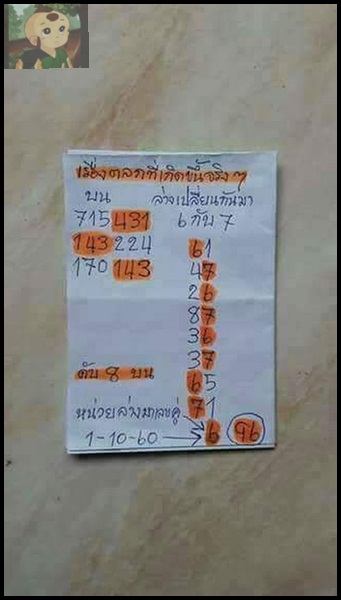 เรื่องตลกที่เกิดขึ้นจริงๆ
บน ล่างเปลี่ยนกันมา
715 431 6 กับ 7
143 224 61
170 143 47
26
87
36
37
ดับ 8 บน 65
หน่วยล่างมาเลขคู่ 71
1-10-60 → 6